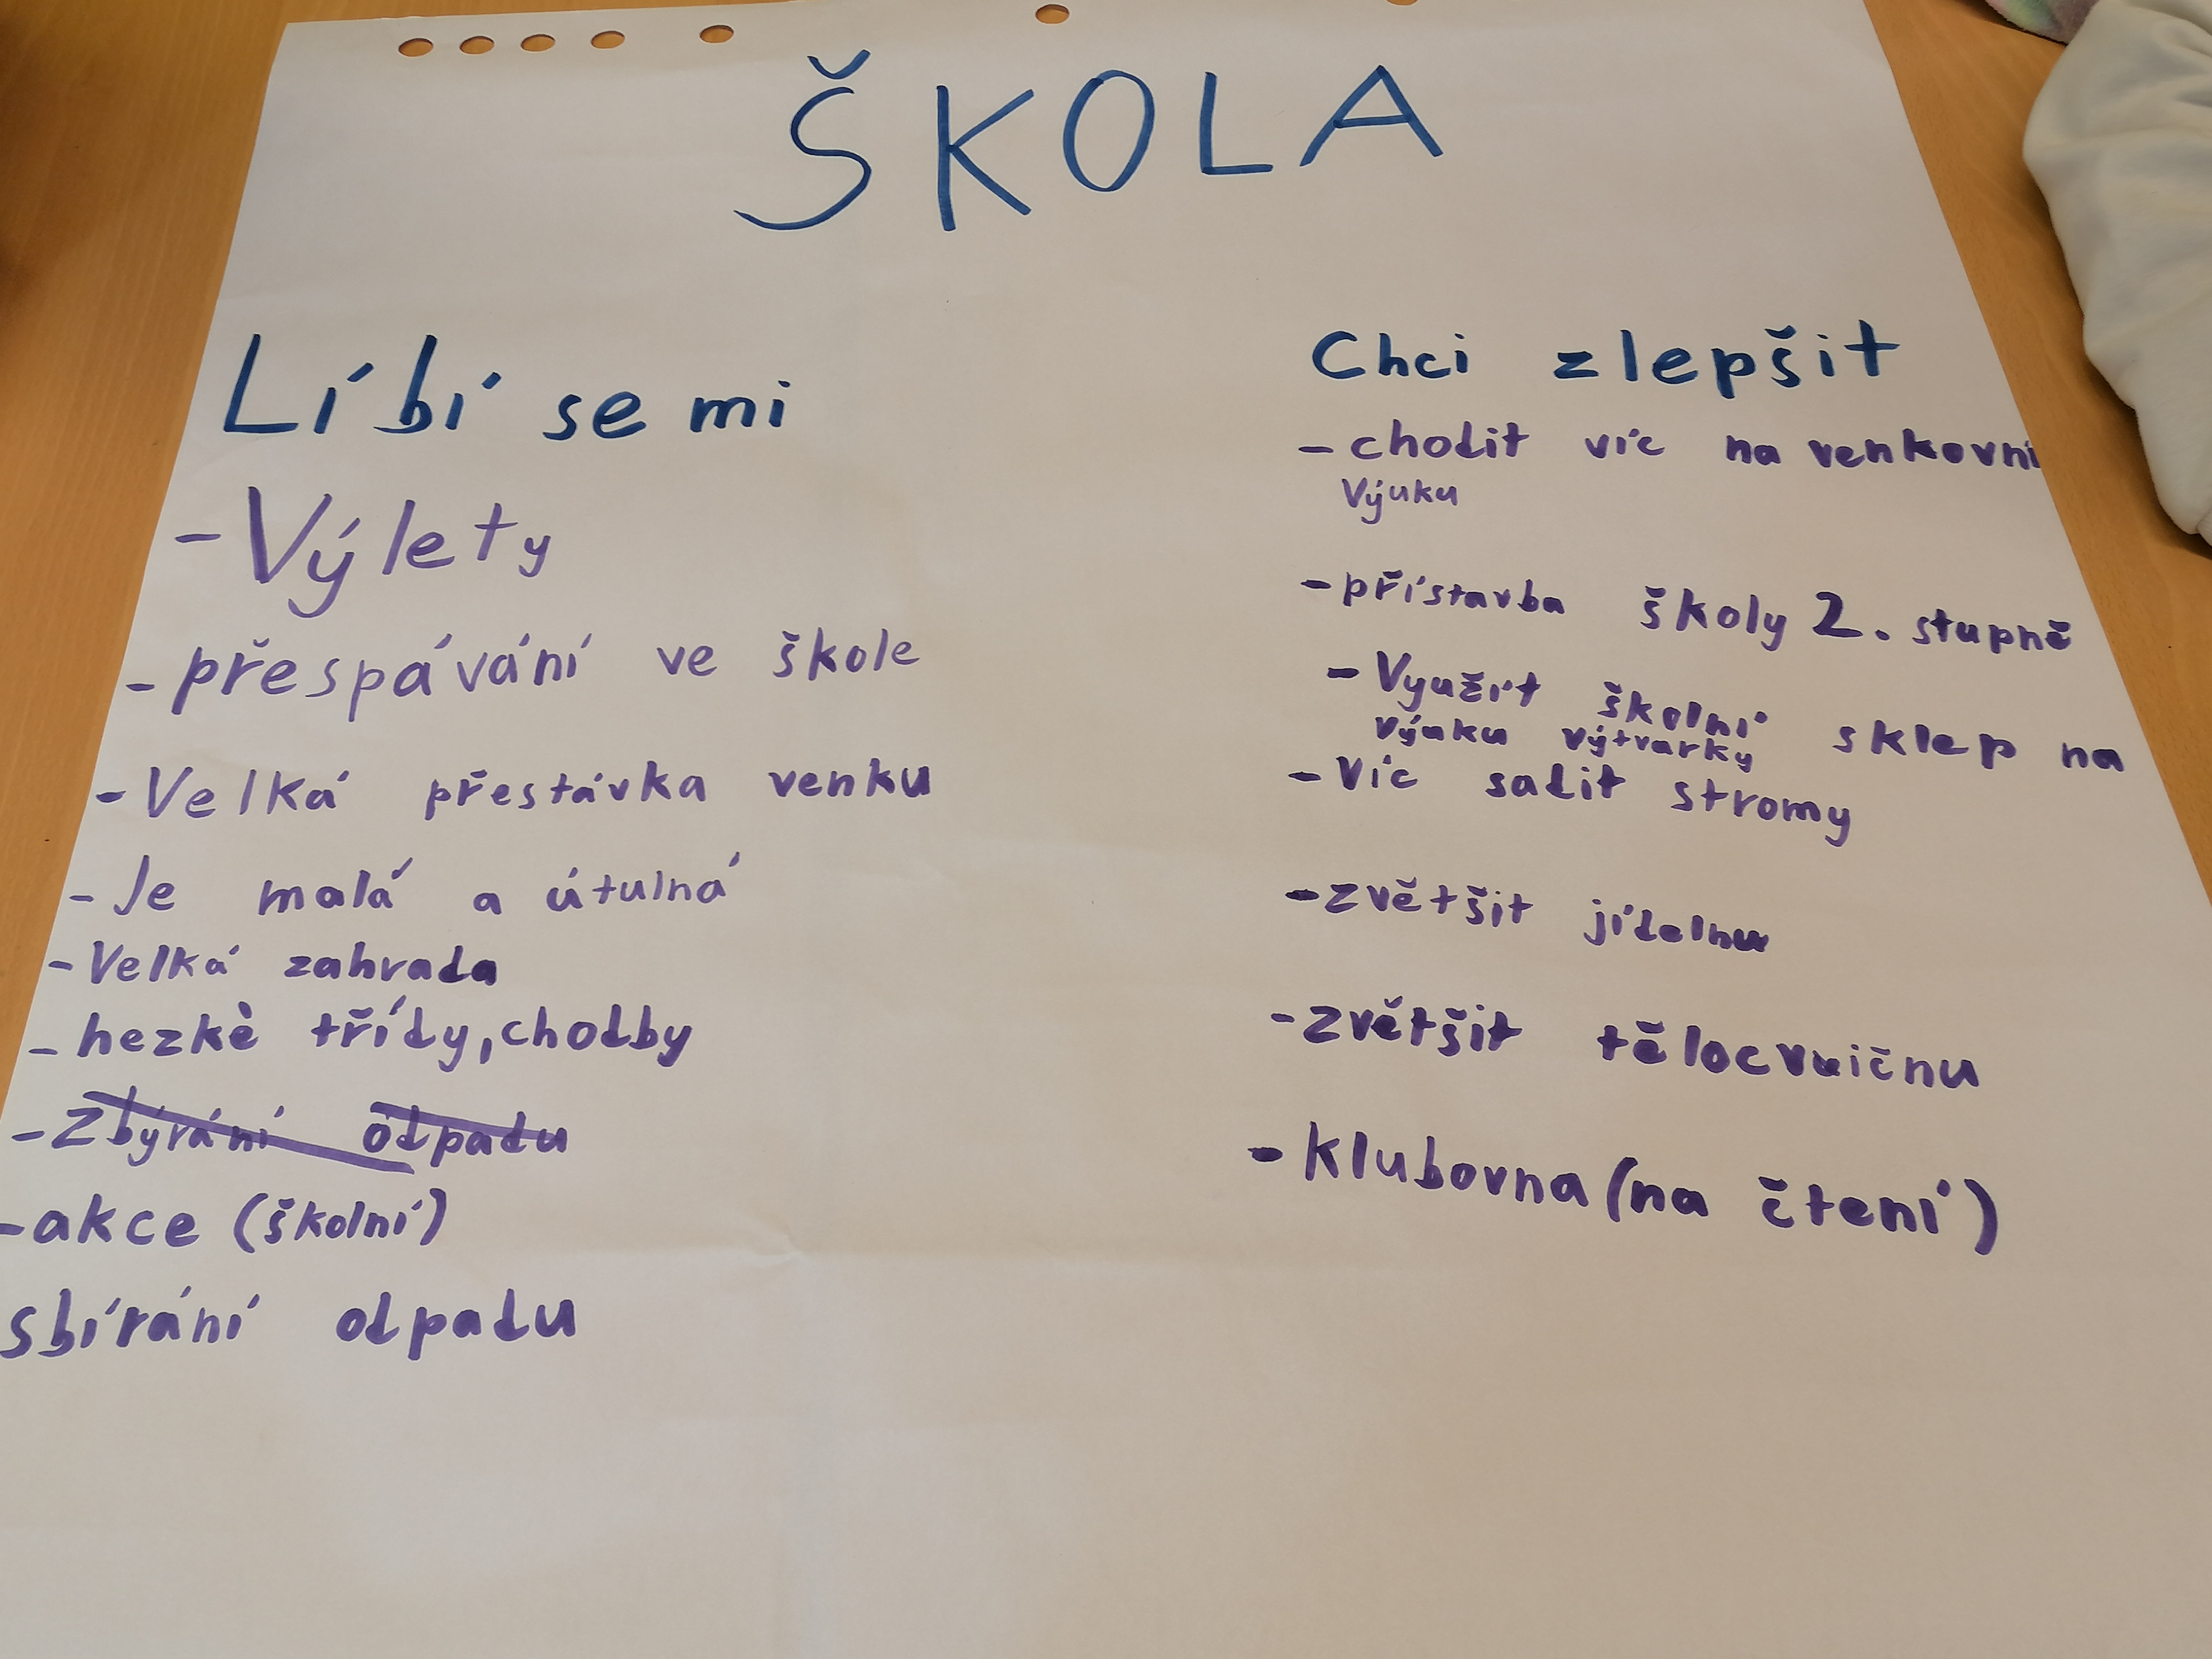 ŠKOLA
Líbí se mi
- Výlety
- přespávání ve škole
- Velká přestávka venku
- Je malá a útulná
- Velká zahrada
- hezkè třídy, chodby
- Zbýrání odpadu
- akce (školní)
sbírání odpadu
Chci zlepšit
- chodit víc na venkovní
Výuku
- přístavba školy 2. stupně
- Využít školní sklep na
výuku výtvarky
- Víc sadit stromy
- zvětšit jídelnu
- zvětšit tělocvničnu
- klubovna (na čtení)